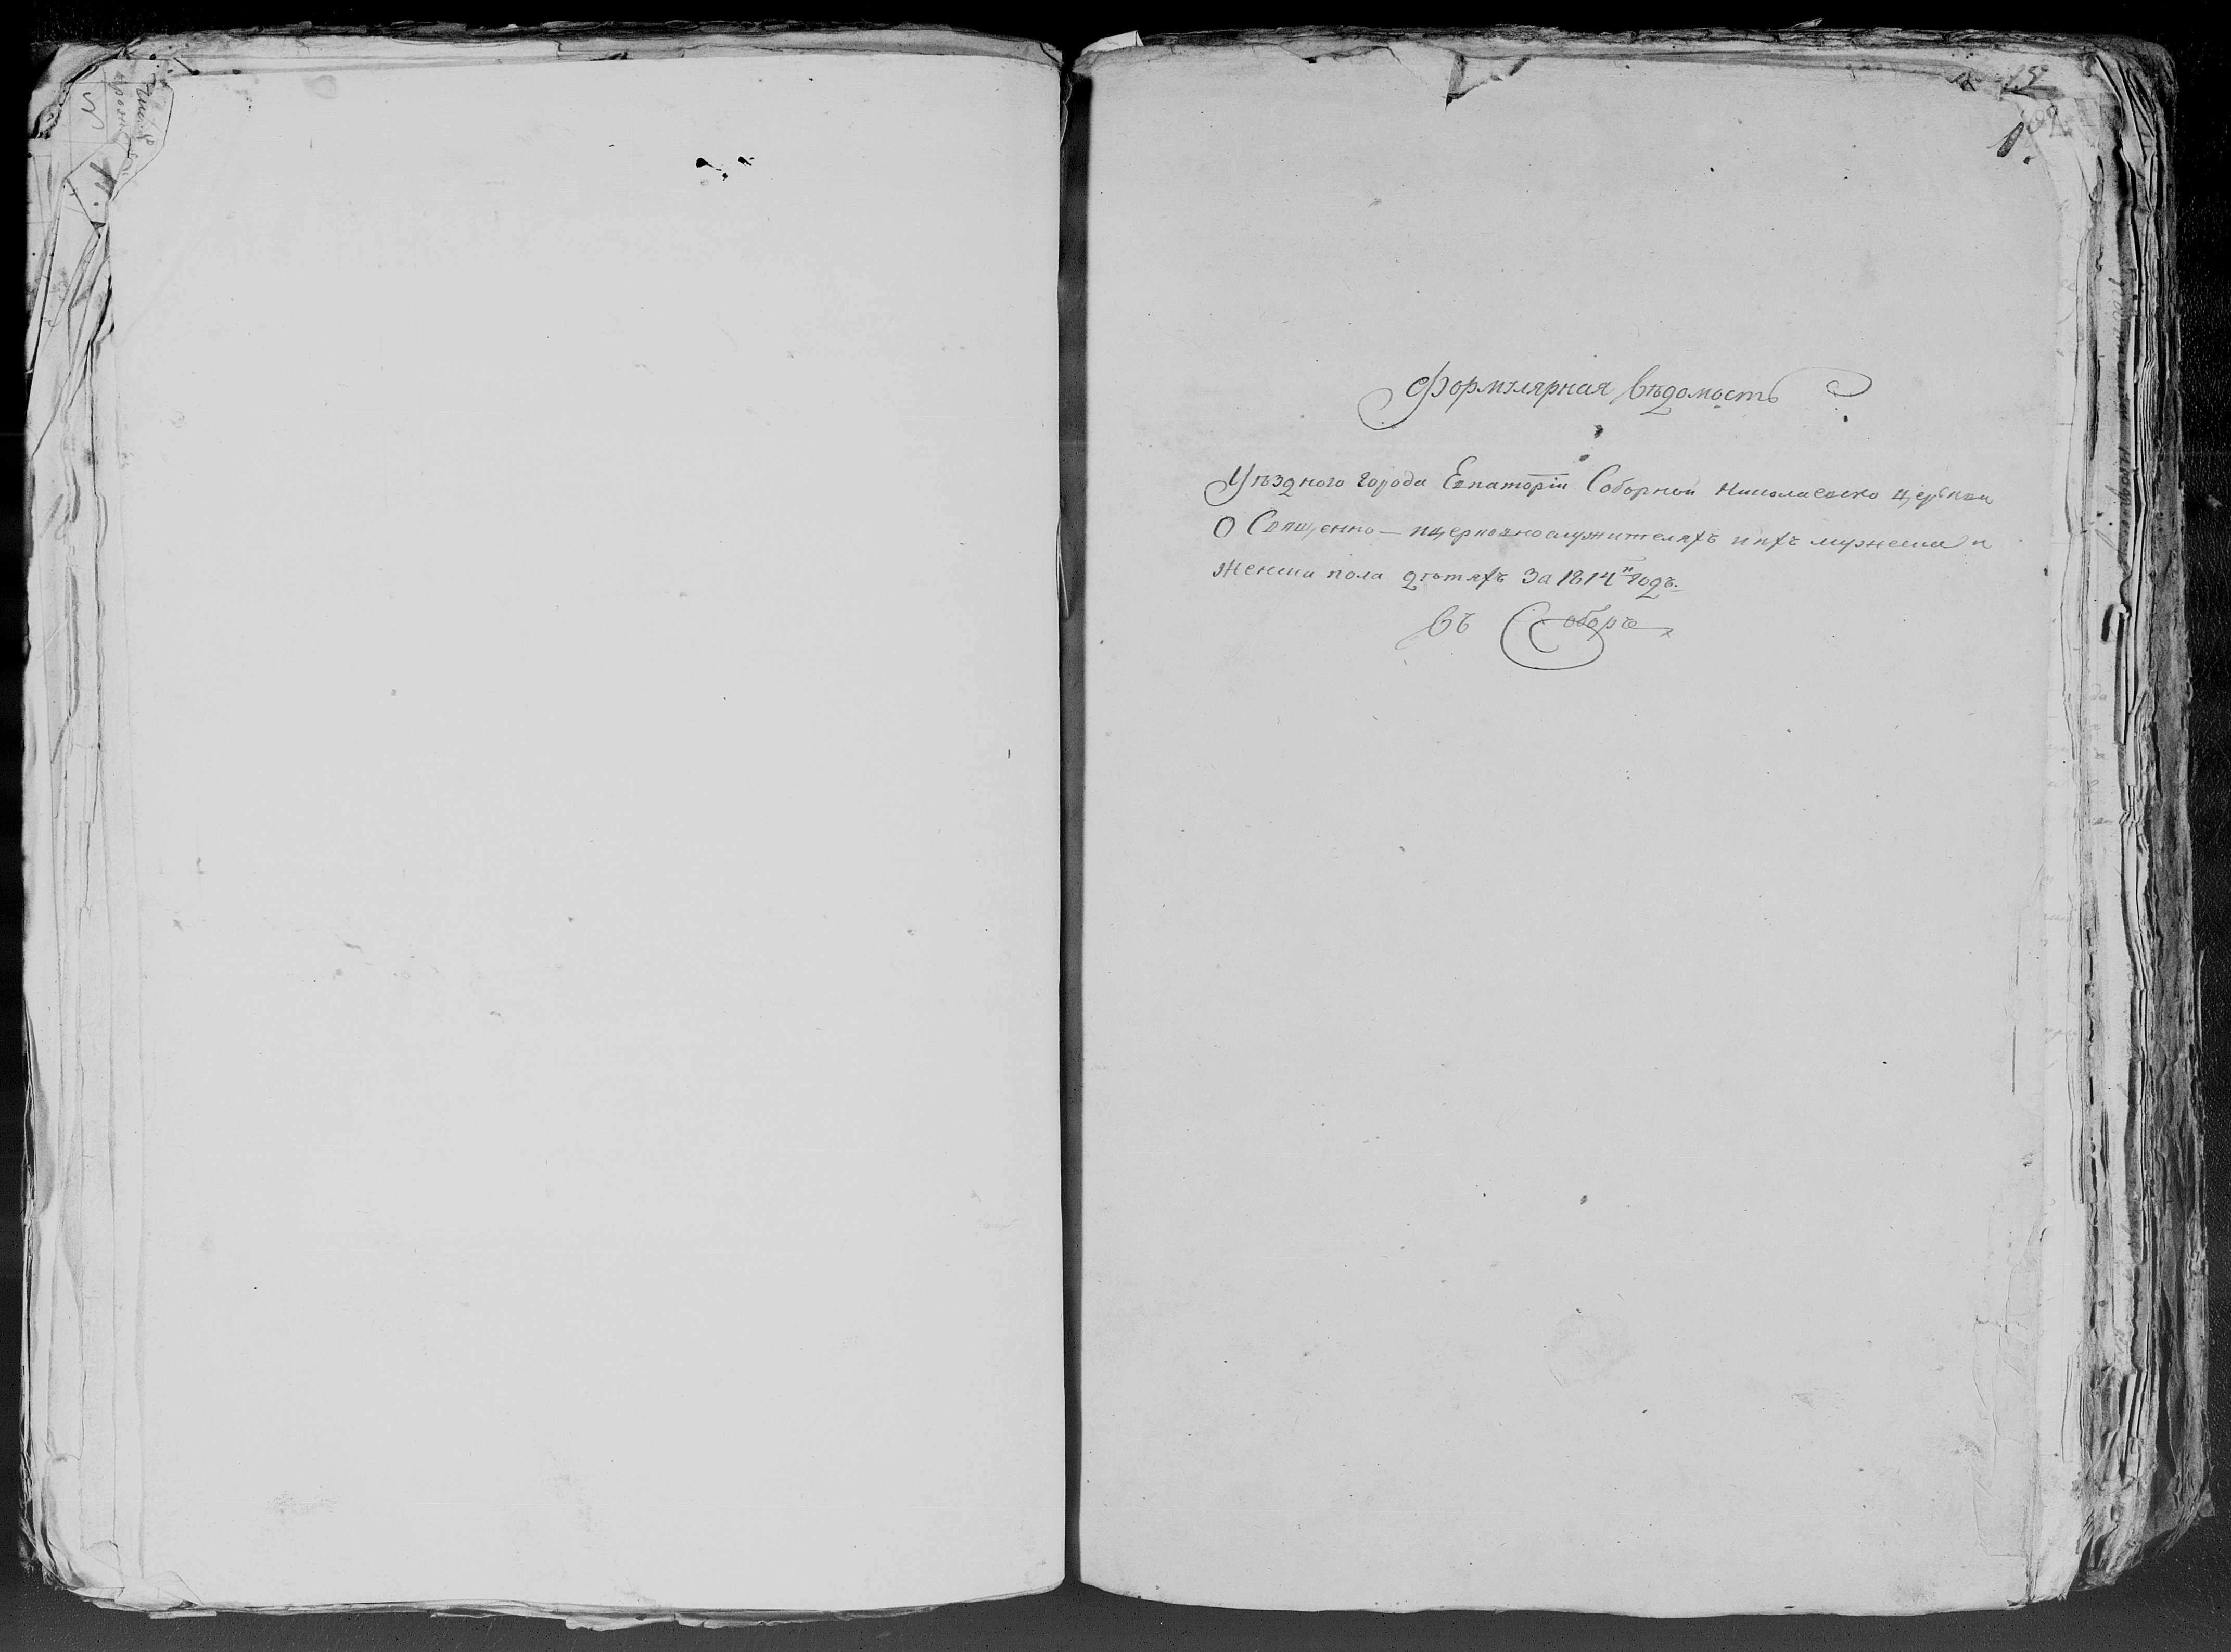 Формулярная Вѣдомость
Уѣзднаго города Евпаторіи Соборной Николаевско Церькви
О Священно– ицерковнослужителяхъ иихъ мужеска и
женска пола дѣтяхъ За 1814й годъ.
Въ Соборѣ